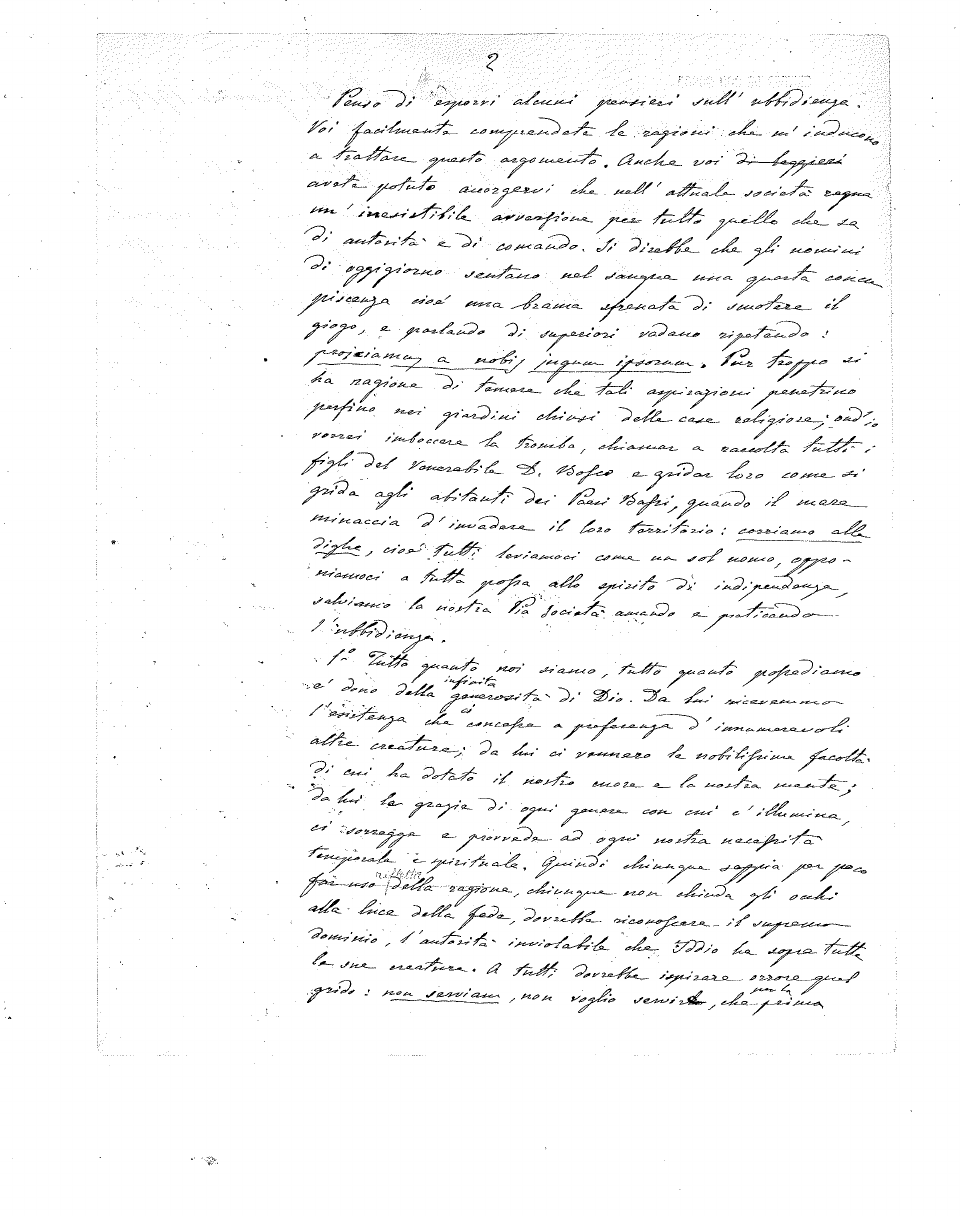 2
Penso di esporvi alcuni pensieri sull' ubbidienza.
Voi facilmente comprendete le ragioni che m' inducono
a trattare questo argomento. Anche voi di leggieri
avete potuto accorgervi che nell' attuale società regna
un' irresistibile avversione per tutto quello che sa
di autorità e di comando. Si direbbe che gli uomini
di oggigiorno sentano nel sangue una quarta concu
piscenza cioè una brama sfrenata di smotere il
giogo, e parlando di superiori vadano ripetendo:
projiciamus a nobis jugum ipsorum. Pur troppo si
ha ragione di temere che tali aspirazioni penetrino
perfino nei giardini chiusi delle case religiose; ond'io
vorrei imboccare la tromba, chiamar a raccolta tutti i
figli del Venerabile D. Bosco e gridar loro come si
grida agli abitanti dei Paesi Bassi, quando il mare
minaccia d' invadere il loro territorio: corriamo alle
dighe, cioè tutti leviamoci come un sol uomo, oppo-
niamoci a tutta possa allo spirito di indipendenza,
salviamo la nostra Pia Società amando e praticando
l' ubbidienza.
1.° Tutto quanto noi siamo, tutto quanto possediamo
è dono della infinita generosità di Dio. Da lui ricevemmo
l' esistenza che ci concesse a preferenza d' innumerevoli
altre creature; da lui ci vennero le nobilissime facoltà
di cui ha dotato il nostro cuore e la nostra mente;
da lui le grazie di ogni genere con cui c' illumina,
ci sorregge e provvede ad ogni nostra necessità
temporale e spirituale. Quindi chiunque sappia per poco
far uso della ragione, chiunque non chiuda gli occhi
alla luce della fede, dovrebbe riconoscere il supremo
dominio, l' autorità inviolabile che Iddio ha sopra tutte
le sue creature. A tutti dovrebbe ispirare orrore quel
grido: non serviam, non voglio servire, che per la prima